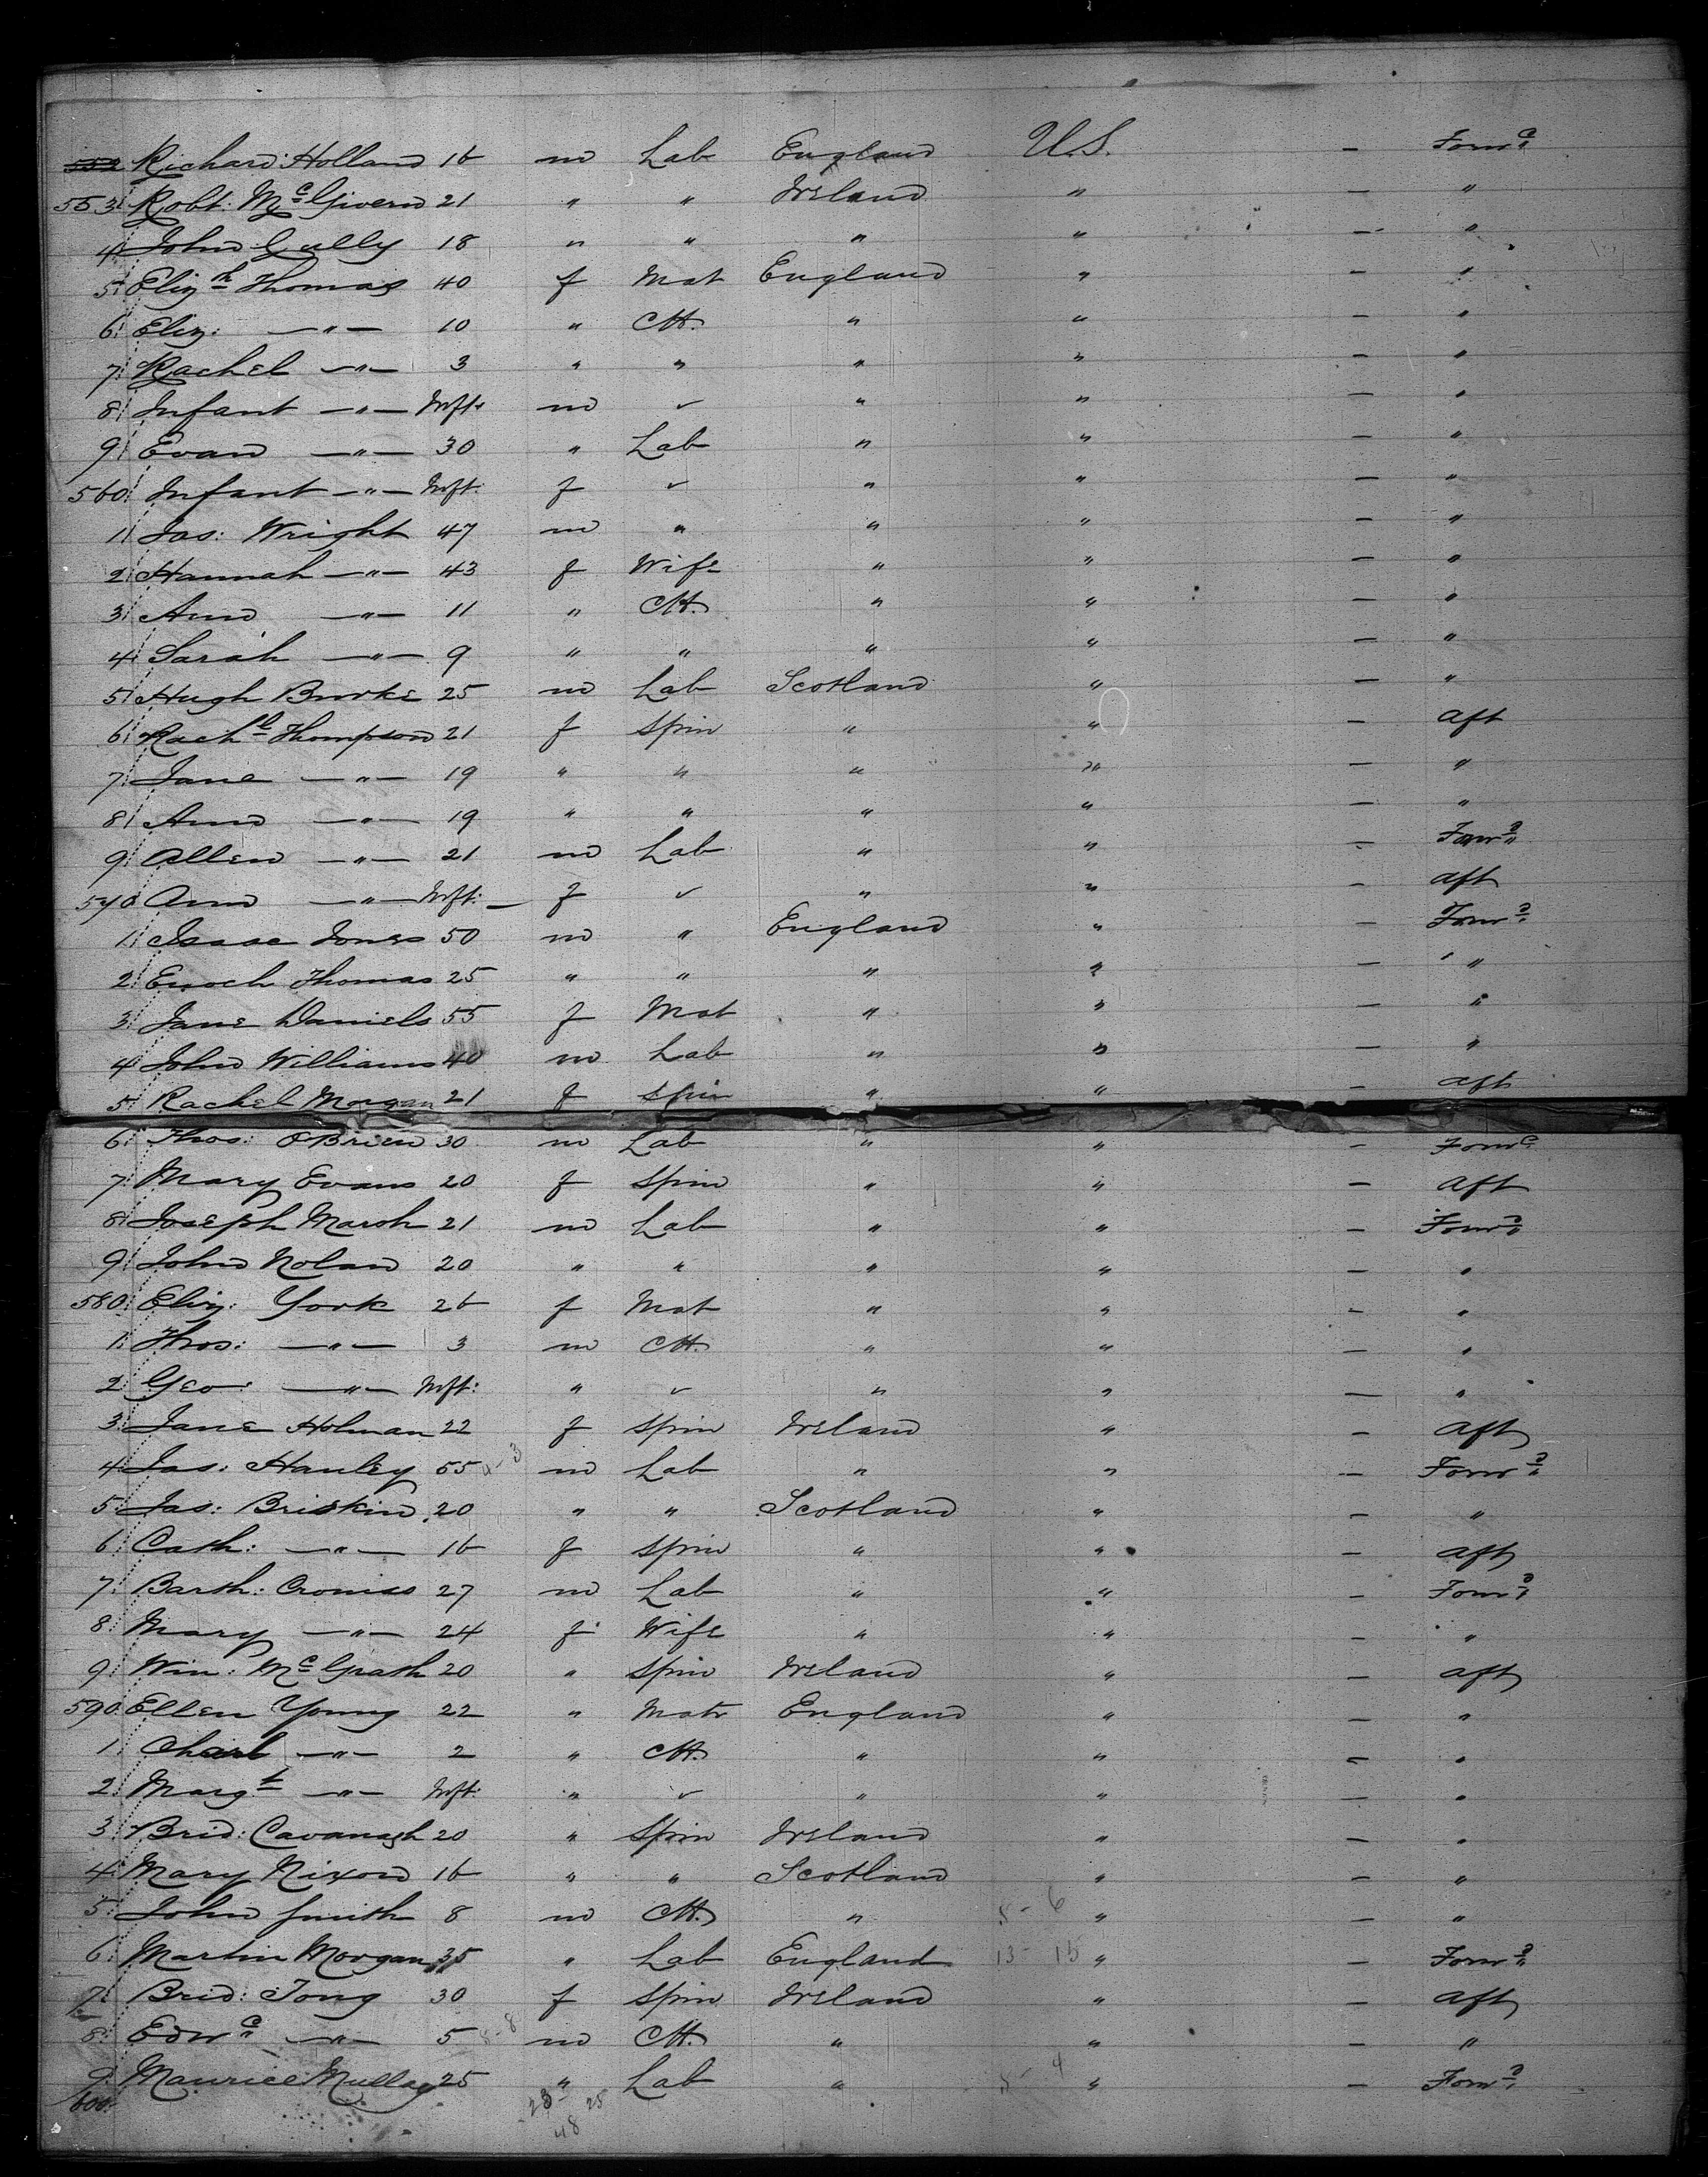 552 Richard Holland 16 m Lab England U.S. — Forwd
553 Robt: McGivern 21 " " Ireland " — "
4 John Gully 18 " " " " — "
5 Elizh Thomas 40 f Mat England " — "
6 Eliz: —"— 10 " Ch. " " — "
7 Rachel —"— 3 " " " " — "
8 Infant —"— Inft: m ✓ " " — "
9 Evan —"— 30 " Lab " " — "
560 Infant —"— Inft: f ✓ " " — "
1 Jas: Wright 47 m " " " — "
2 Hannah —"— 43 f Wife " " — "
3 Ann —"— 11 " Ch. " " — "
4 Sarah —"— 9 " " " " — "
5 Hugh Burke 25 m Lab Scotland " — "
6 Rachl Thompson 21 f Spin " " — aft
7 Jane —"— 19 " " " " — "
8 Ann —"— 19 " " " " — "
9 Allen —"— 21 m Lab " " — Forwd
570 Ann —"— Inft: — f ✓ " " — aft
1 Isaac Jones 50 m " England " — Forwd
2 Enoch Thomas 25 " " " " — "
3 Jane Daniels 55 f Mat " " — "
4 John Williams 40 m Lab " " — "
5 Rachel Morgan 21 f Spin " " — aft
6 Thos: OBrien 30 m Lab " " — Forwd
7 Mary Evans 20 f Spin " " — aft
8 Joseph Marsh 21 m Lab " " — Forwd
9 John Nolan 20 " " " " — "
580 Eliz: York 26 f Mat " " — "
1 Thos: —"— 3 m Ch. " " — "
2 Geo: —"— Inft: " ✓ " " — "
3 Jane Holman 22 f Spin Ireland " — aft
4 Jas: Hanley 55 m Lab " " — Forwd
5 Jas: Briskin 20 " " Scotland " — "
6 Cath: —"— 16 f Spin " " — aft
7 Barth: Croniss 27 m Lab " " — Forwd
8 Mary —"— 24 f Wife " " — "
9 Win: McGrath 20 " Spin Ireland " — aft
590 Ellen Young 22 " Matr England " — "
1 Charl —"— 2 " Ch. " " — "
2 Margt —"— Inft: " ✓ " " — "
3 Brid: Cavanagh 20 " Spin Ireland " — "
4 Mary Nixon 16 " " Scotland " — "
5 John Smith 8 m Ch. " 5-6 " — "
6 Martin Morgan 35 " Lab England 13-15 " — Forwd
7 Brid: Tong 30 f Spin Ireland " — aft
8 Edwd —"— 5 8-8 m Ch. " " — "
9 Maurice Mullay 25 " Lab " 5-4 " — Forwd
600 23 25
48